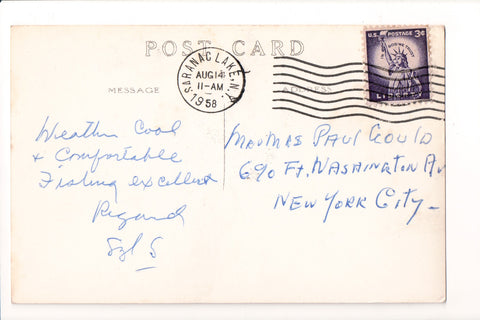 POST CARD
U.S. POSTAGE 3¢
SARANAC LAKE, N.Y.
AUG 14
11-AM
1958
LIBERTY
MESSAGE
ADDRESS
Weather Cool
& Comfortable
Fishing excellent
Regard
Mr & Mrs Paul Gould
690 Ft. Washington Av
New York City-